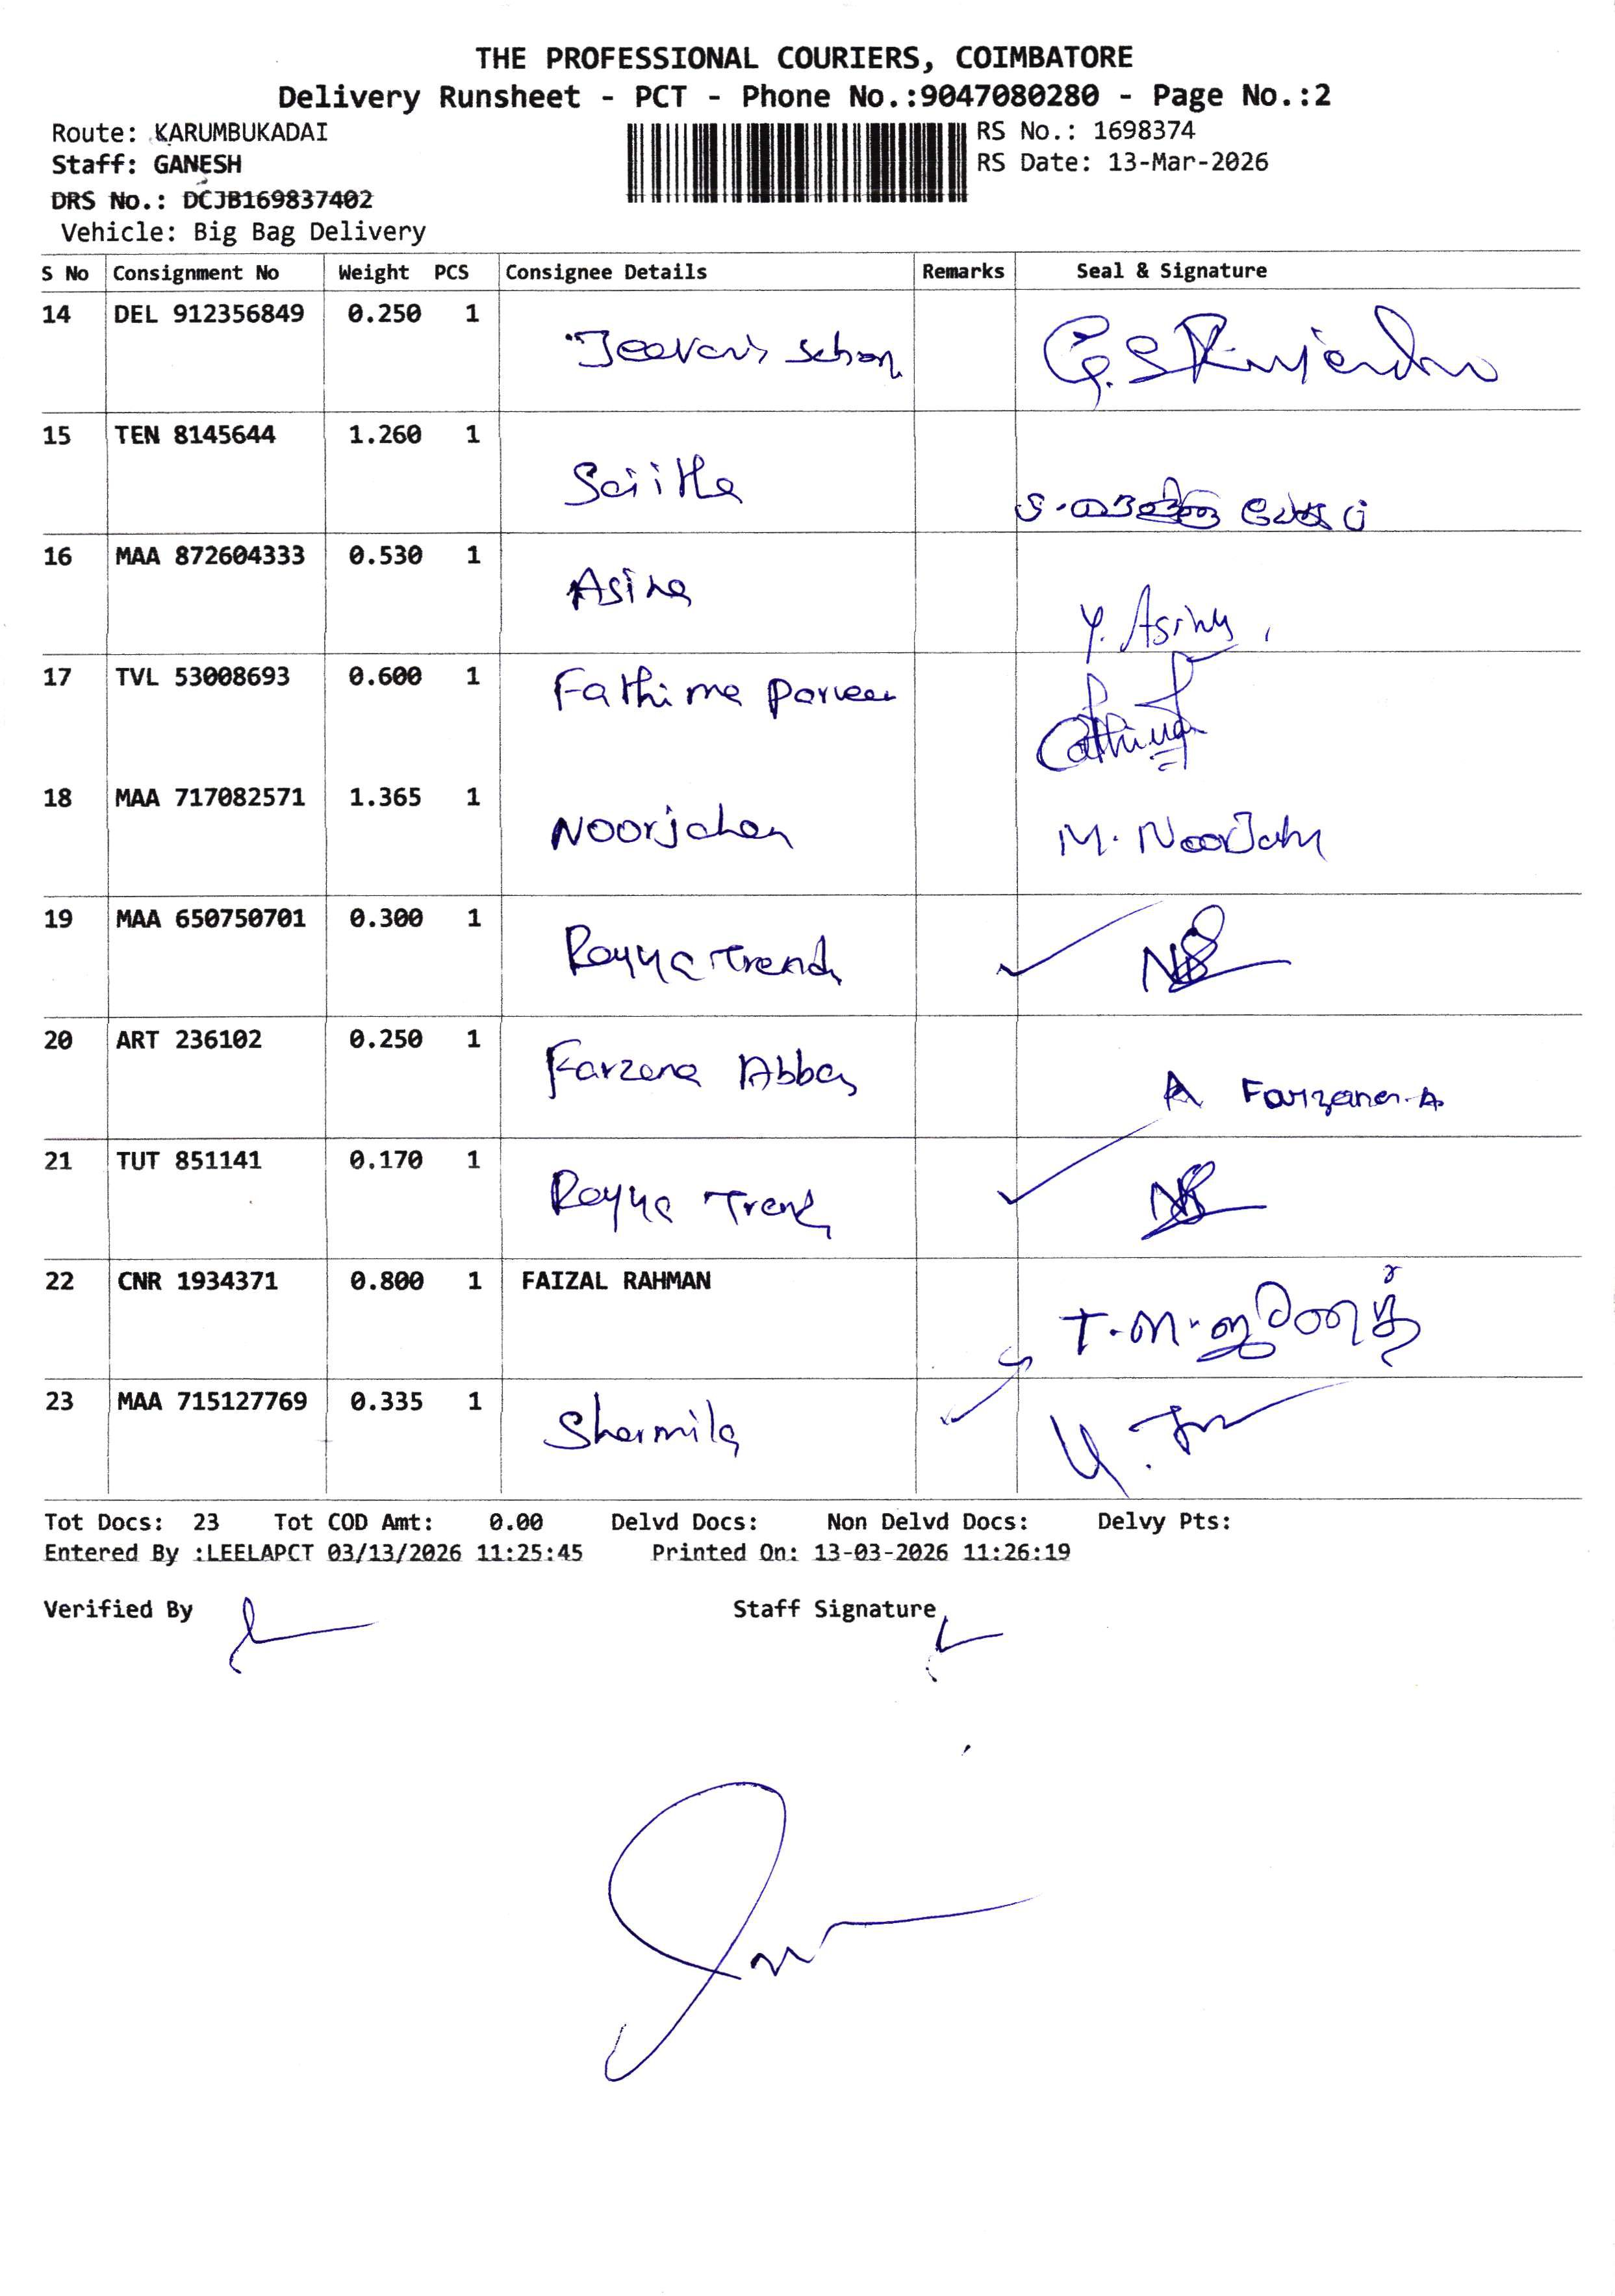 THE PROFESSIONAL COURIERS, COIMBATORE
Delivery Runsheet - PCT - Phone No.:9047080280 - Page No.:2
Route: KARUMBUKADAI
RS No.: 1698374
Staff: GANESH
RS Date: 13-Mar-2026
DRS No.: DCJB169837402
Vehicle: Big Bag Delivery
S No Consignment No Weight PCS Consignee Details Remarks Seal & Signature
14 DEL 912356849 0.250 1
15 TEN 8145644 1.260 1
16 MAA 872604333 0.530 1 Asina Y. Asina
17 TVL 53008693 0.600 1 Fathima Parveen
18 MAA 717082571 1.365 1 Noorjahan M. NoorJahn
19 MAA 650750701 0.300 1 Rayya Trends
20 ART 236102 0.250 1 Farzana Abbas A Farzana.A
21 TUT 851141 0.170 1 Rayya Trend
22 CNR 1934371 0.800 1 FAIZAL RAHMAN
23 MAA 715127769 0.335 1 Sharmila
Tot Docs: 23 Tot COD Amt: 0.00 Delvd Docs: Non Delvd Docs: Delvy Pts:
Entered By :LEELAPCT 03/13/2026 11:25:45 Printed On: 13-03-2026 11:26:19
Verified By Staff Signature